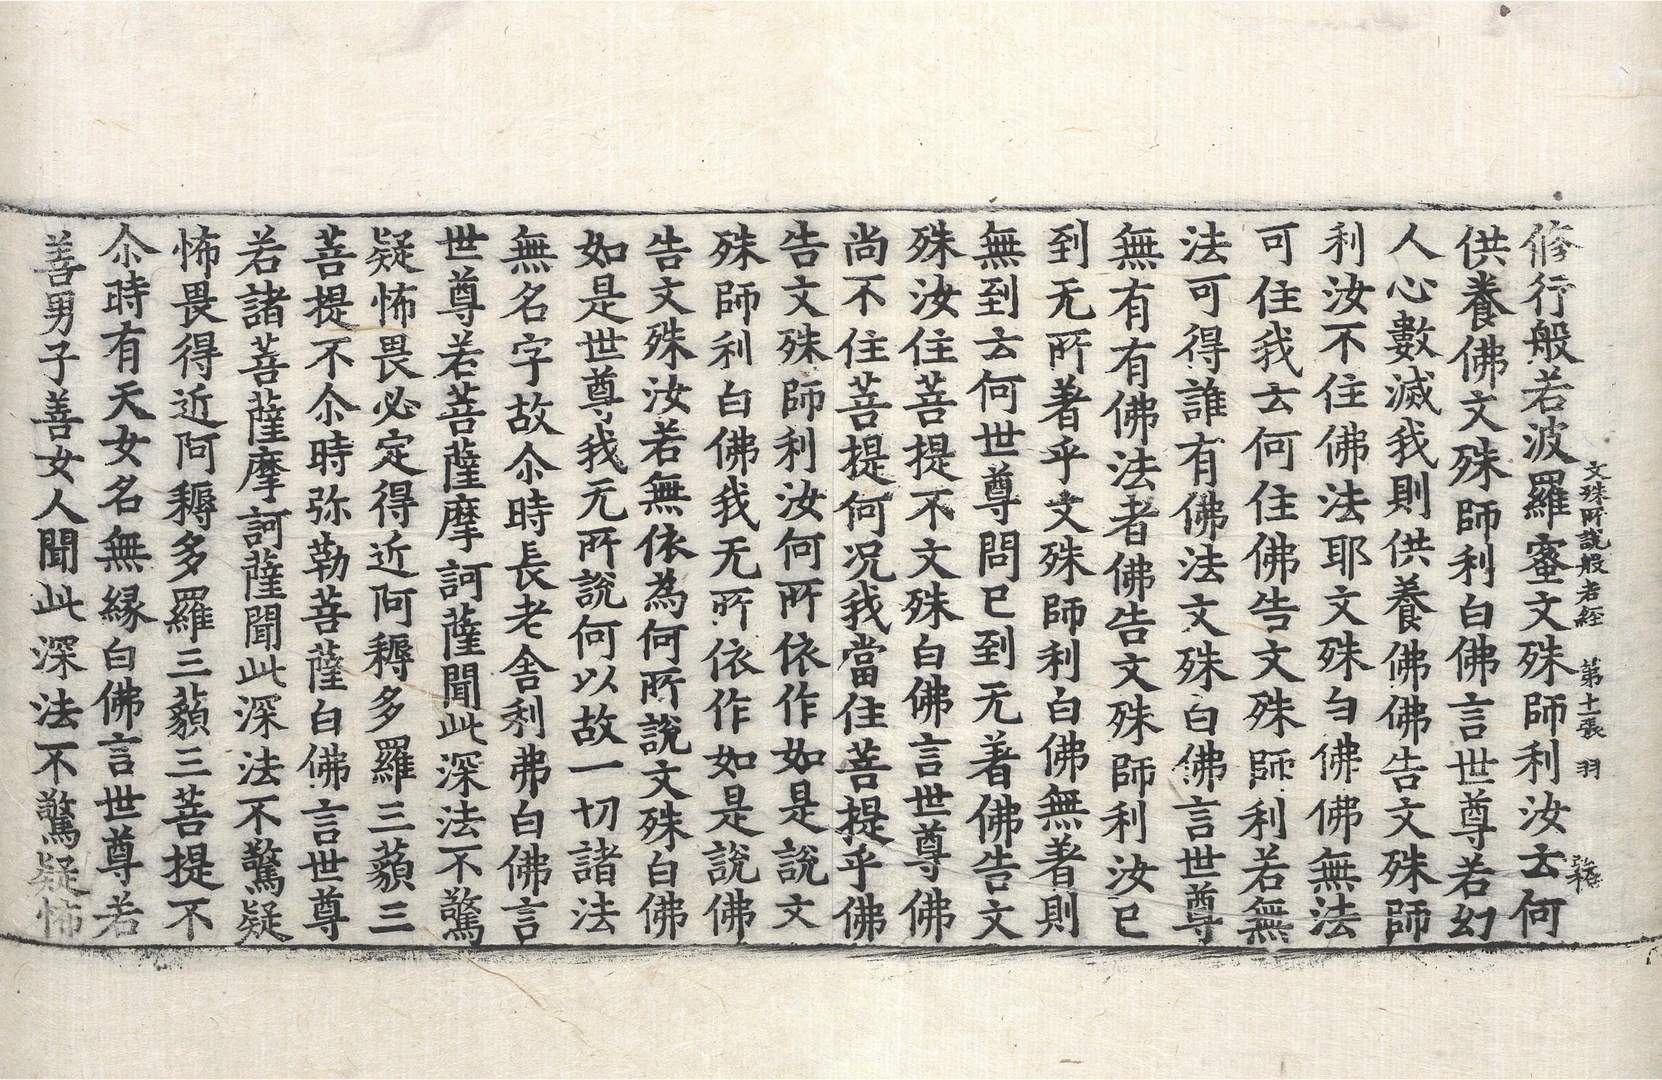 文殊所說般若經　第十一張　羽
修行般若波羅蜜文殊師利汝云何
供養佛文殊師利白佛言世尊若幻
人心數滅我則供養佛佛告文殊師
利汝不住佛法耶文殊白佛佛無法
可住我云何住佛告文殊師利若無
法可得誰有佛法文殊白佛言世尊
無有有佛法者佛告文殊師利汝已
到无所著乎文殊師利白佛無著則
無到云何世尊問已到无著佛告文
殊汝住菩提不文殊白佛言世尊佛
尚不住菩提何况我當住菩提乎佛
告文殊師利汝何所依作如是說文
殊師利白佛我无所依作如是說佛
告文殊汝若無依為何所說文殊白佛
如是世尊我无所說何以故一切諸法
無名字故尒時長老舍利弗白佛言
世尊若菩薩摩訶薩聞此深法不驚
疑怖畏必定得近阿耨多羅三藐三
菩提不尒時弥勒菩薩白佛言世尊
若諸菩薩摩訶薩聞此深法不驚疑
怖畏得近阿耨多羅三藐三菩提不
尒時有天女名無緣白佛言世尊若
善男子善女人聞此深法不驚疑怖